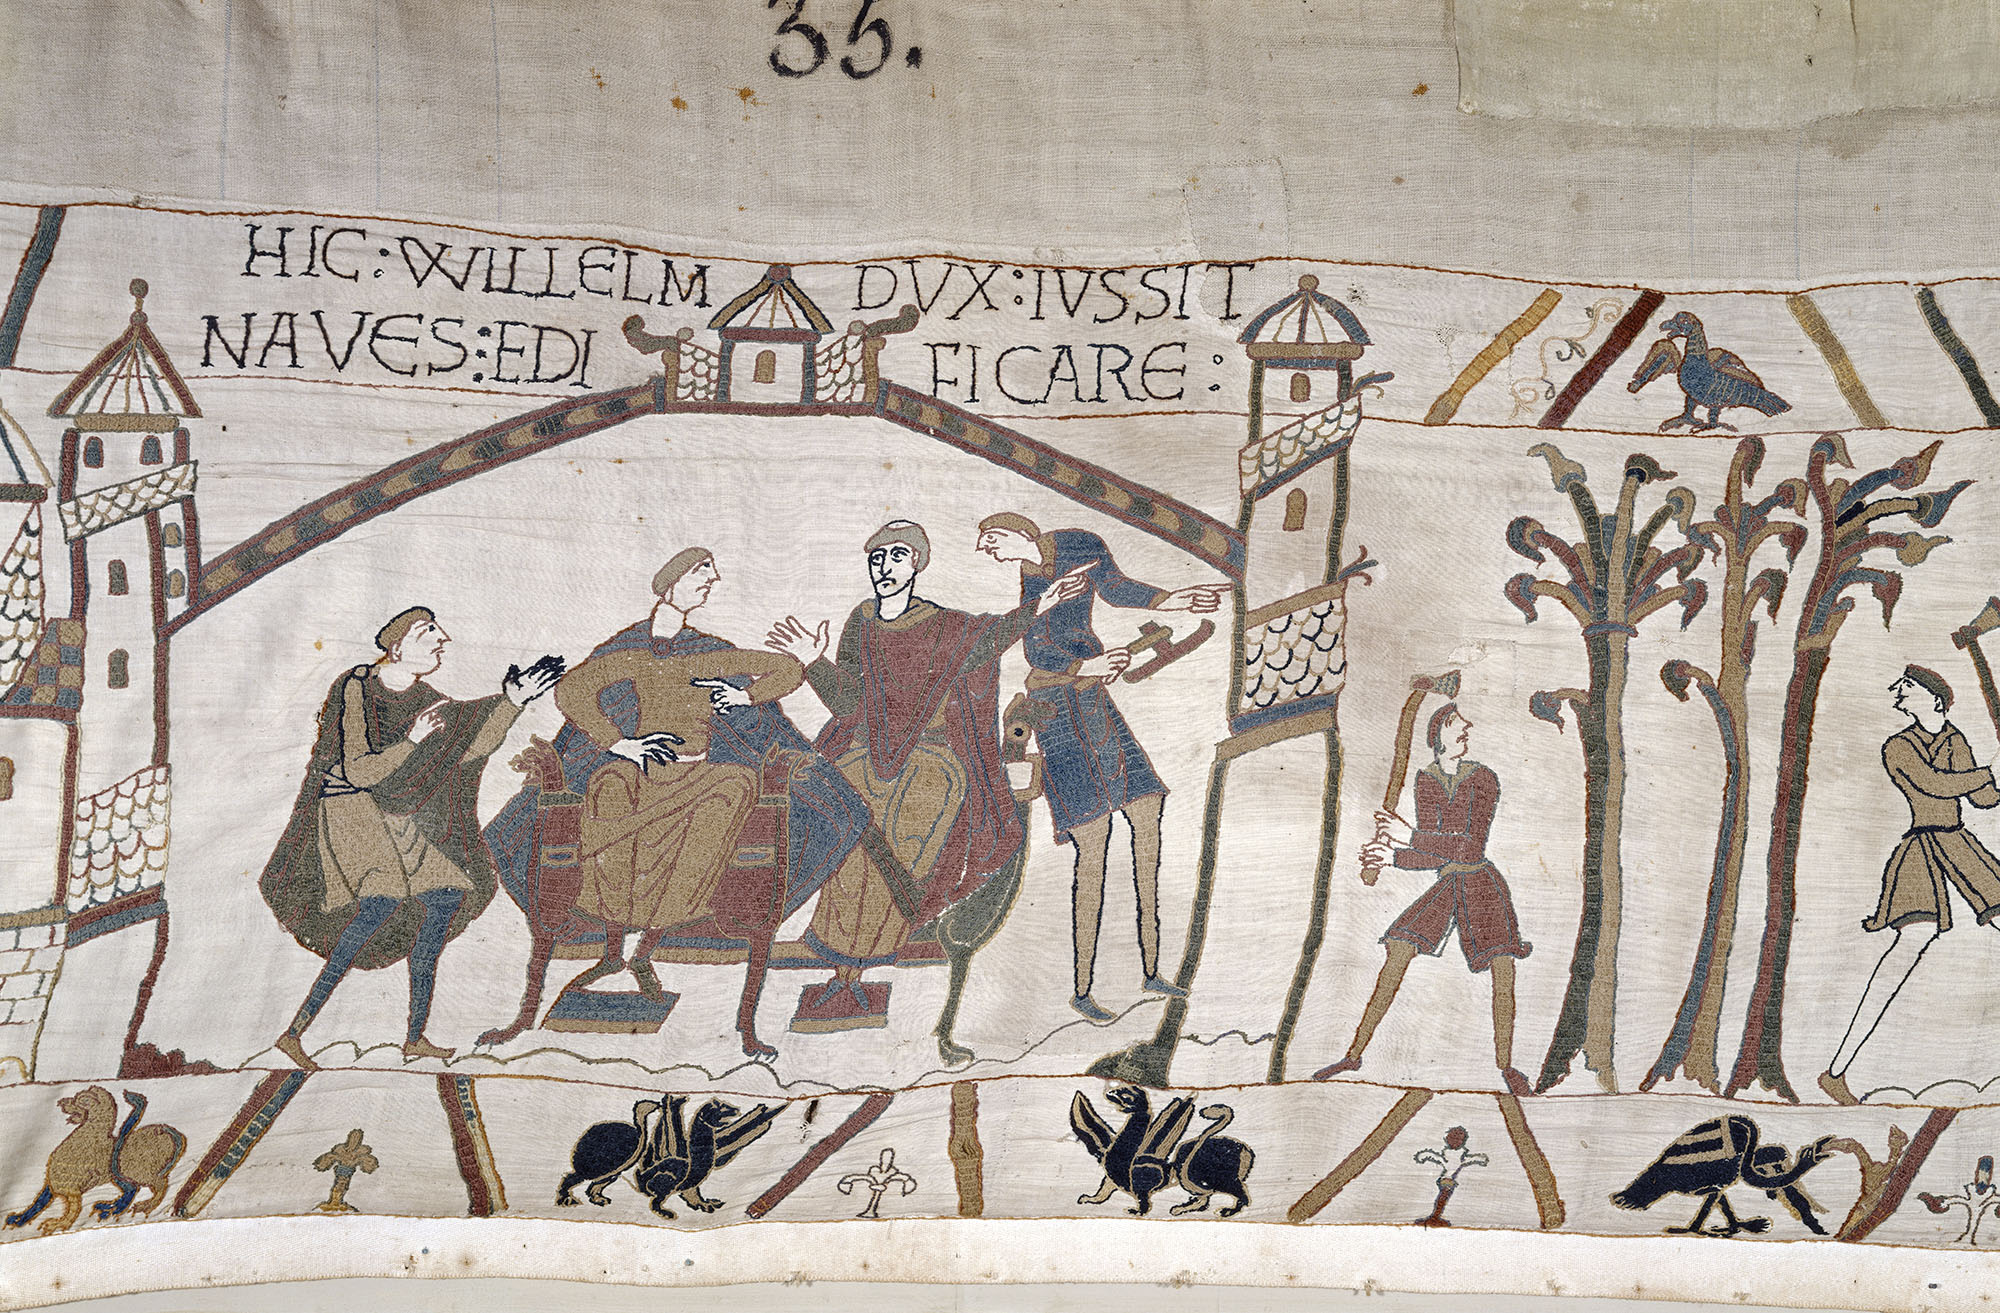 35.
HIC : WILLELM DVX : IVSSIT
NAVES : EDI FICARE :